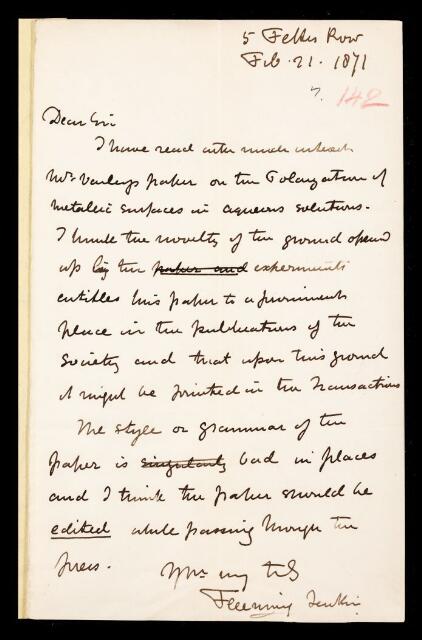 5 Fettes Row
Feb. 21. 1871
142
Dear Sir
I have read with much interest
Mr Varley's paper on the Polarization of
metallic surfaces in aqueous solutions.
I think the novelty of the ground opened
up by the paper and experiments
entitles his paper to a prominent
place in the publications of the
Society and that upon this ground
it might be printed in the Transactions
The style or grammar of the
paper is singularly bad in places
and I think the paper should be
edited while passing through the
press.
Fleeming Jenkin